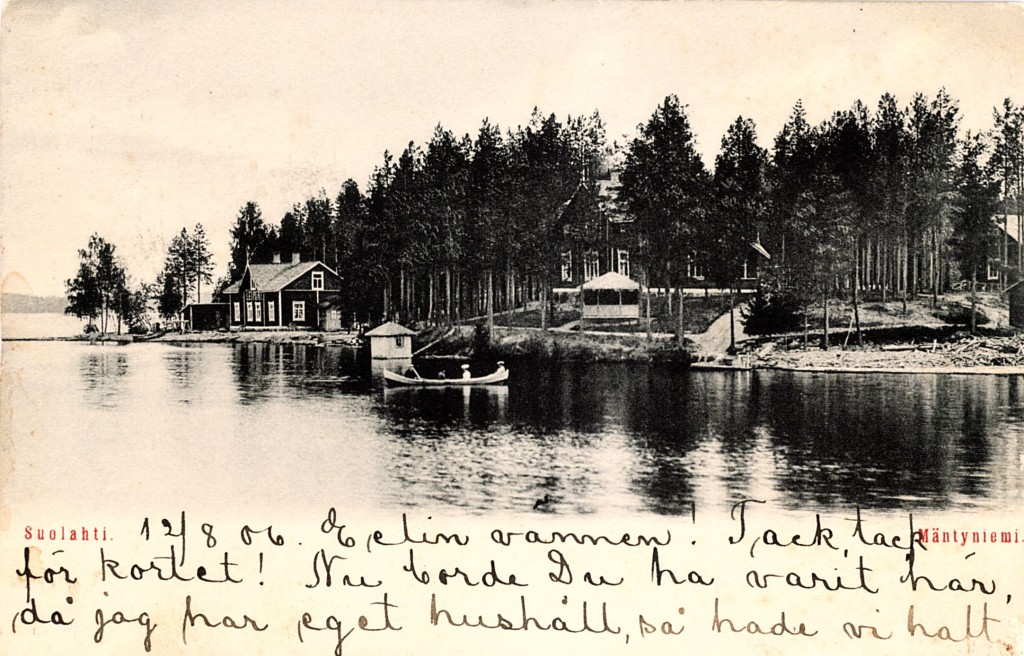 Suolahti. 12/8 06. Eelin vännen! Tack, tack Mäntyniemi.
för kortet! Nu borde Du ha varit här,
då jag har eget hushåll, så hade vi haft